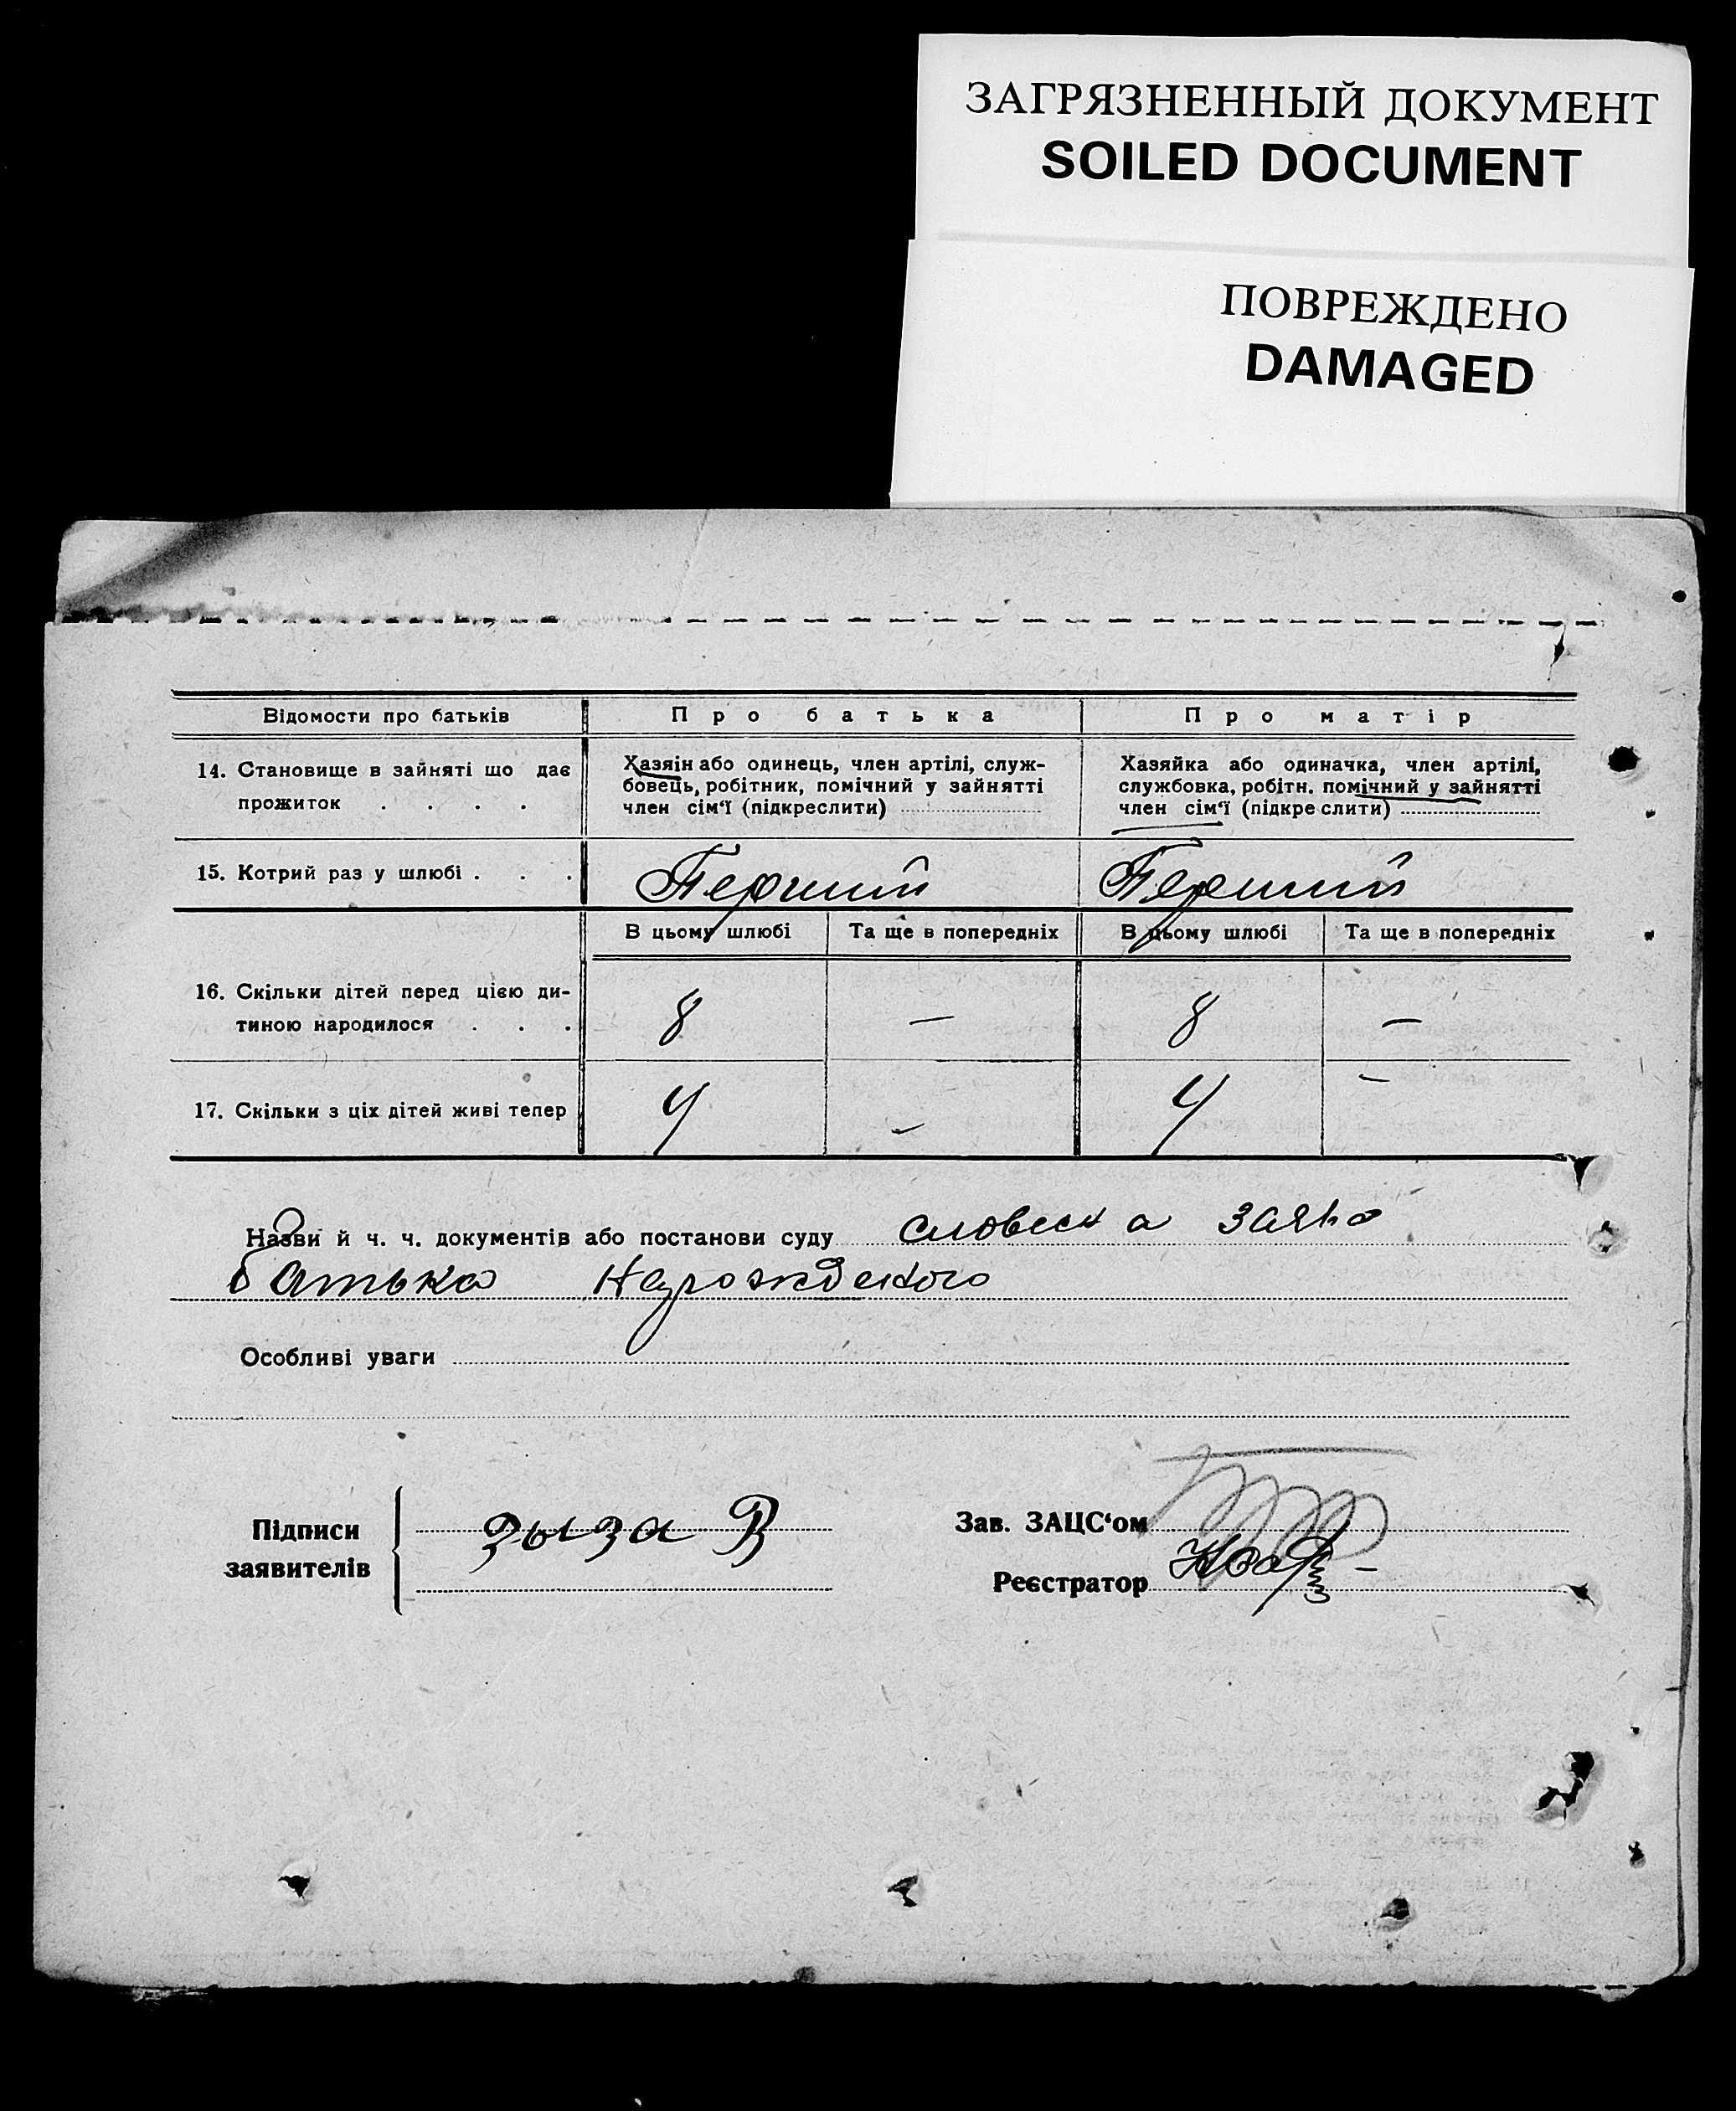 ЗАГРЯЗНЕННЫЙ ДОКУМЕНТ
SOILED DOCUMENT
ПОВРЕЖДЕНО
DAMAGED
Відомости про батьків Про батька Про матір
14. Становище в зайняті що дає прожиток . . . .
Хазяін або одинець, член артілі, служ-
бовець, робітник, помічний у зайнятті
член сім‘ї (підкреслити)
Хазяйка або одиначка, член артілі,
службовка, робітн. помічний у зайнятті
член сім‘ї (підкреслити)
15. Котрий раз у шлюбі . . . Перший Перший
В цьому шлюбі Та ще в попередніх В цьому шлюбі Та ще в попередніх
16. Скільки дітей перед цією ди-
тиною народилося . . . 8 — 8 —
17. Скільки з ціх дітей живі тепер 4 — 4 —
Назви й ч. ч. документів або постанови суду словесна заява
батька
Особливі уваги
Підписи
заявителів
Зыза В
Зав. ЗАЦС‘ом
Реєстратор